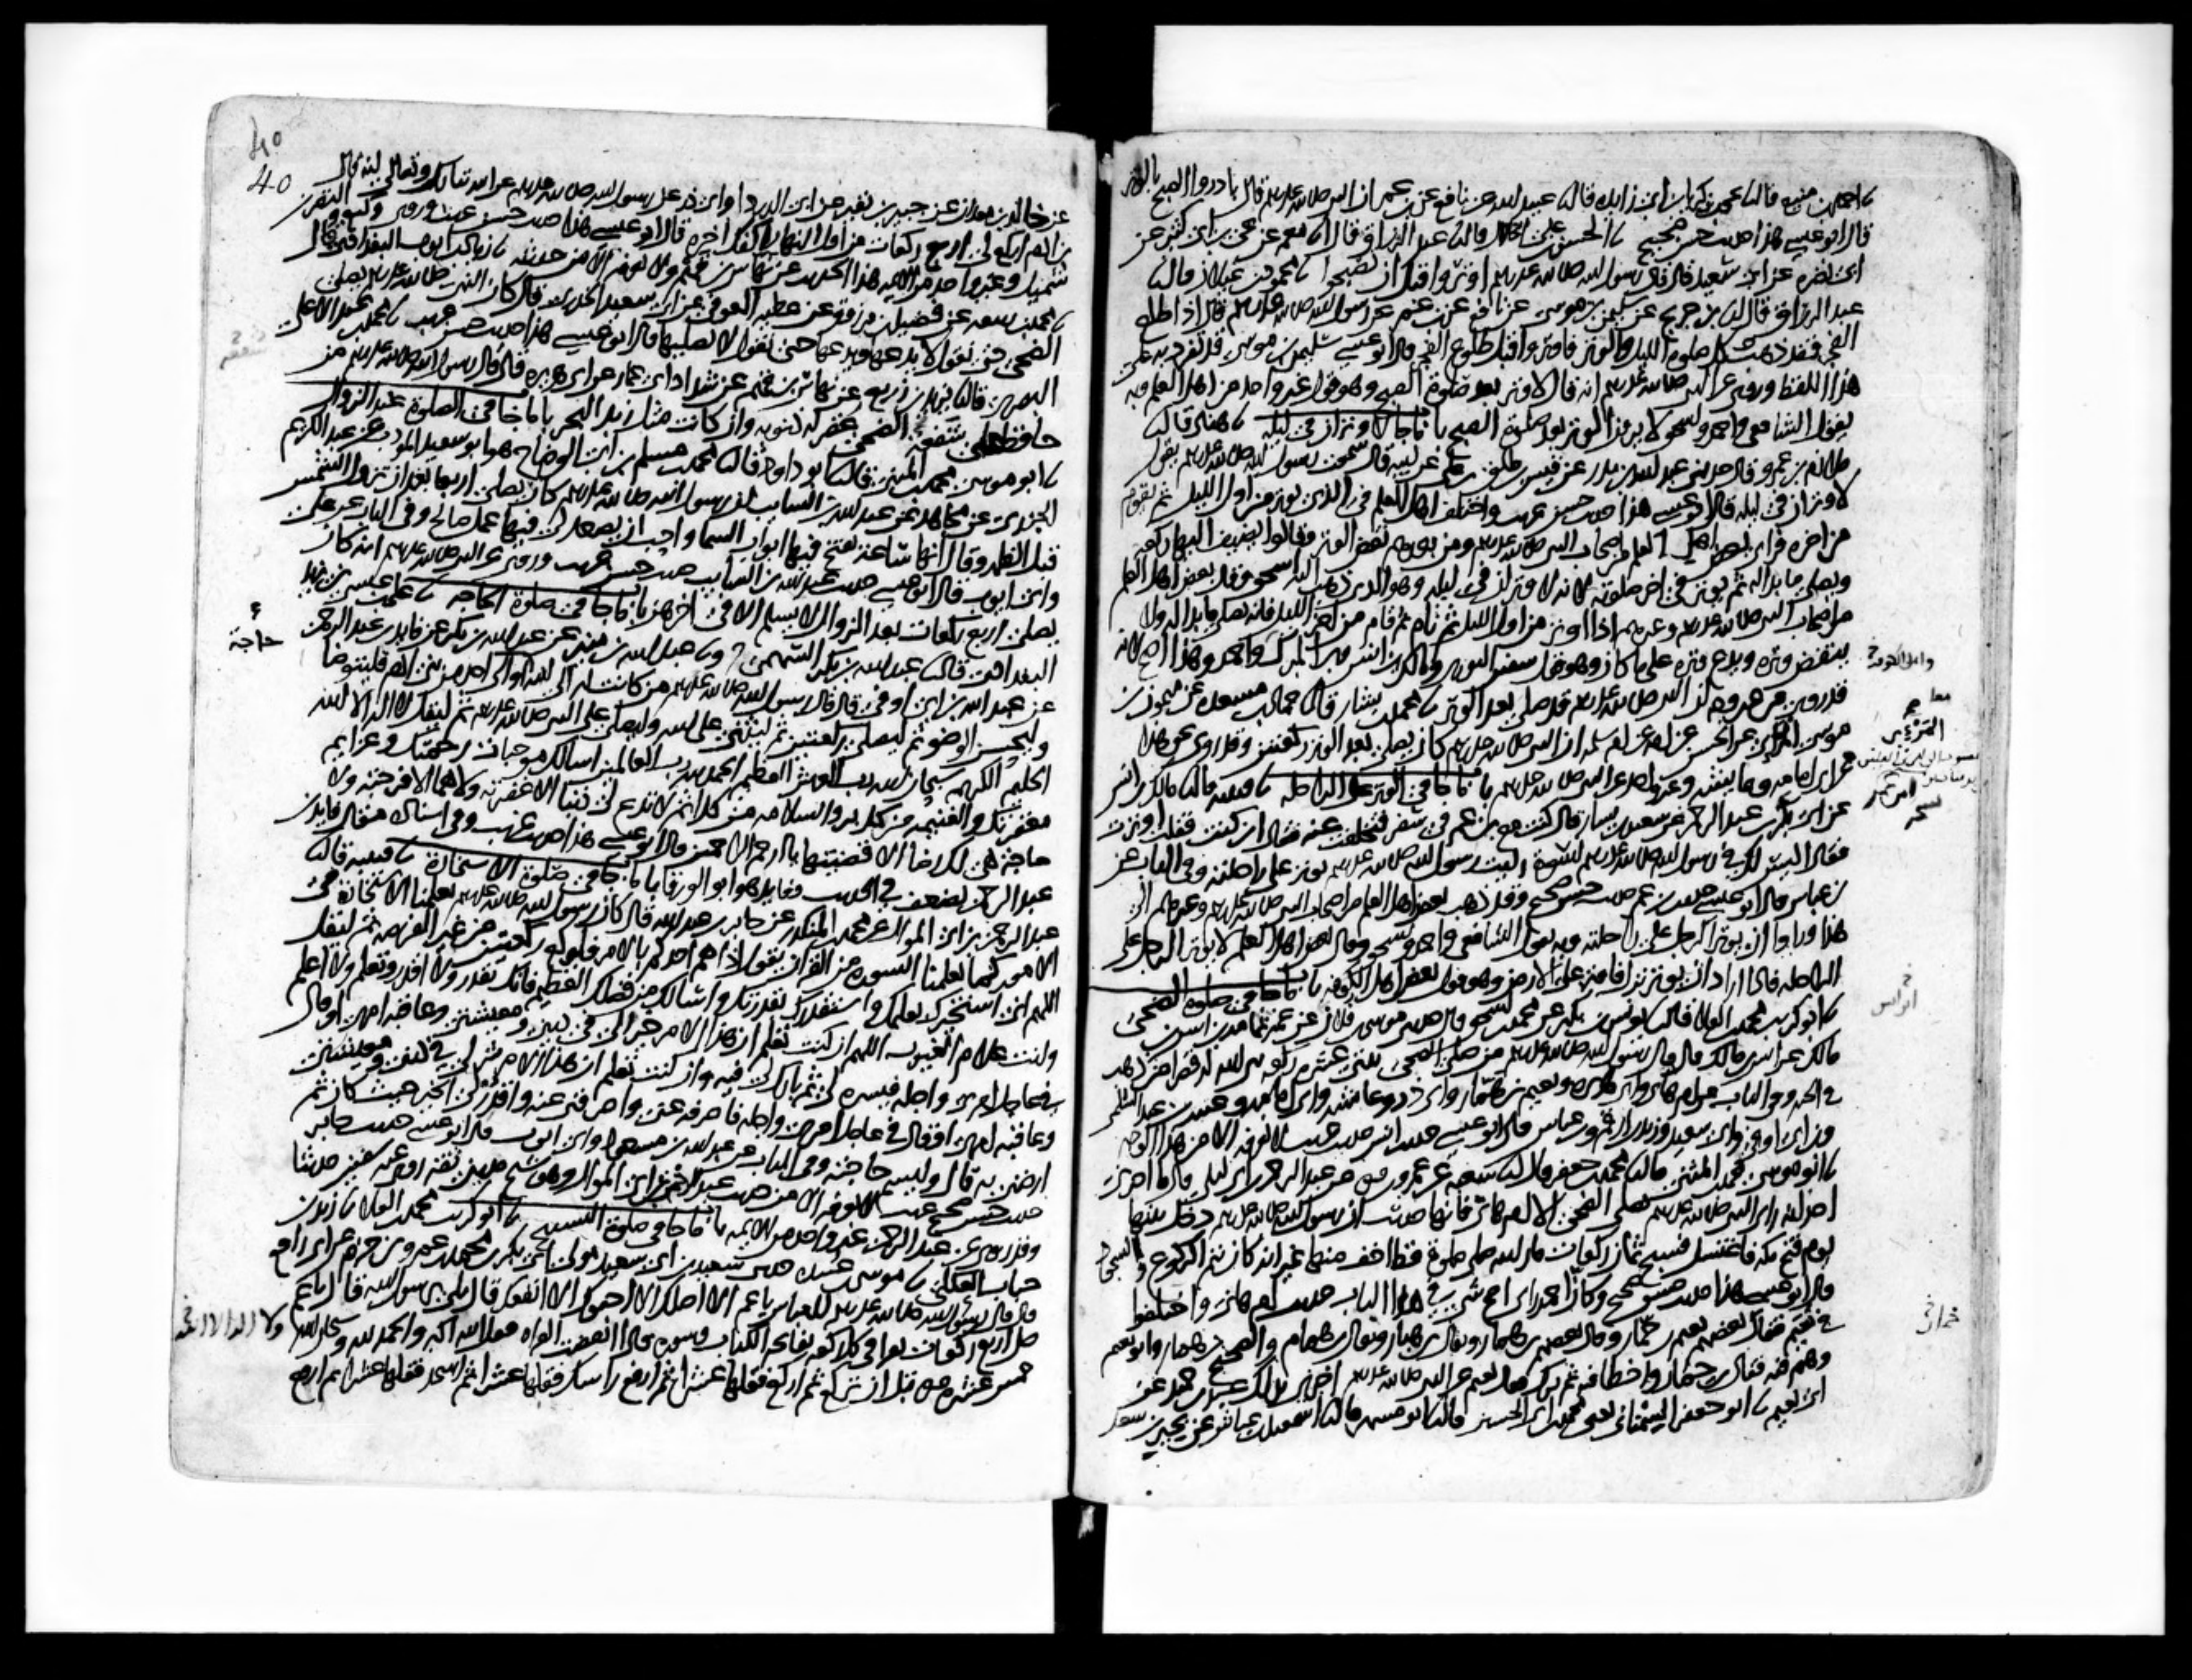 نا احمد بن منيع قال نا يحيى بن زكريا بن ابي زايدة قال نا عبيد الله عن نافع عن ابن عمر ان النبي صلى الله عليه وسلم قال بادروا الصبح بالوتر
قال ابو عيسى هذا حديث حسن صحيح نا الحسن بن علي الخلال قال نا عبد الرزاق قال انا معمر عن يحيى بن ابي كثير عن
ابي نضرة عن ابي سعيد قال قال رسول الله صلى الله عليه وسلم اوتروا قبل ان تصبحوا نا محمود بن غيلان قال نا
عبد الرزاق قال انا ابن جريج عن سليمن بن موسى عن نافع عن ابن عمر عن رسول الله صلى الله عليه وسلم قال اذا طلع
الفجر فقد ذهب كل صلوة الليل والوتر فاوتروا قبل طلوع الفجر قال ابو عيسى سليمن بن موسى قد تفرد به على
هذا اللفظ وروي عن النبي صلى الله عليه وسلم انه قال لا وتر بعد صلوة الصبح وهو قول غير واحد من اهل العلم وبه
يقول الشافعي واحمد واسحق لا يرون الوتر بعد صلوة الصبح باب ما جا لا وتران في ليلة نا هناد قال نا
ملازم بن عمرو قال حدثني عبد الله بن بدر عن قيس بن طلق بن علي عن ابيه قال سمعت رسول الله صلى الله عليه وسلم يقول
لا وتران في ليلة قال ابو عيسى هذا حديث حسن غريب واختلف اهل العلم في الذي يوتر من اول الليل ثم يقوم
من اخره فراى بعض اهل العلم من اصحاب النبي صلى الله عليه وسلم ومن بعدهم نقض الوتر وقالوا يضيف اليها ركعة
ويصلي ما بدا له ثم يوتر في اخر صلوته لانه لا وتران في ليلة وهو الذي ذهب اليه اسحق وقال بعض اهل العلم
من اصحاب النبي صلى الله عليه وسلم وغيرهم اذا اوتر من اول الليل ثم نام ثم قام من اخر الليل فانه يصلي ما بدا له ولا
ينقض وتره ويدع وتره على ما كان وهو قول سفين الثوري ومالك بن انس وابن المبارك واحمد وهذا اصح لانه
قد روي من غير وجه ان النبي صلى الله عليه وسلم قد صلى بعد الوتر نا محمد بن بشار قال نا حماد بن مسعدة عن ميمون بن
موسى المراي عن الحسن عن امه عن ام سلمة ان النبي صلى الله عليه وسلم كان يصلي بعد الوتر ركعتين وقد روي نحو هذا
عن ابي امامة وعايشة وغير واحد عن النبي صلى الله عليه وسلم باب ما جا في الوتر على الراحلة نا قتيبة قال نا مالك بن انس
عن ابي بكر بن عبد الرحمن عن سعيد بن يسار قال كنت مع ابن عمر في سفر فتخلفت عنه فقال اين كنت فقلت اوترت
فقال اليس لك في رسول الله صلى الله عليه وسلم اسوة رايت رسول الله صلى الله عليه وسلم يوتر على راحلته وفي الباب عن
ابن عباس قال ابو عيسى حديث ابن عمر حديث حسن صحيح وقد ذهب بعض اهل العلم من اصحاب النبي صلى الله عليه وسلم وغيرهم الى
هذا وراوا ان يوتر الرجل على راحلته وبه يقول الشافعي واحمد واسحق وقال بعض اهل العلم لا يوتر الرجل على
الراحلة فاذا اراد ان يوتر نزل فاوتر على الارض وهو قول بعض اهل الكوفة باب ما جا في صلوة الضحى
نا ابو كريب محمد بن العلا قال نا يونس بن بكير عن محمد بن اسحق قال حدثني موسى بن فلان عن عمه ثمامة بن انس بن
مالك عن انس بن مالك قال قال رسول الله صلى الله عليه وسلم من صلى الضحى ثنتي عشرة ركعة بنى الله له قصرا من ذهب
في الجنة وفي الباب عن ام هاني وابي هريرة ونعيم بن همار وابي ذر وعايشة وابي امامة وعتبة بن عبد السلمي
وابن ابي اوفى وابي سعيد وزيد بن ارقم وابن عباس قال ابو عيسى حديث انس حديث غريب لا نعرفه الا من هذا الوجه
نا ابو موسى محمد بن المثنى قال نا محمد بن جعفر قال نا شعبة عن عمرو بن مرة عن عبد الرحمن بن ابي ليلى قال ما اخبرني
احد انه راى النبي صلى الله عليه وسلم يصلي الضحى الا ام هاني فانها حدثت ان رسول الله صلى الله عليه وسلم دخل بيتها
يوم فتح مكة فاغتسل فسبح ثمان ركعات ما رايته صلى صلوة قط اخف منها غير انه كان يتم الركوع والسجود
قال ابو عيسى هذا حديث حسن صحيح وكان احمد راى اصح شي في هذا الباب حديث ام هاني واختلفوا
في نعيم فقال بعضهم نعيم بن خمار وقال بعضهم ابن همار ويقال ابن هبار ويقال ابن همام والصحيح ابن همار وابو نعيم
وهم فيه فقال ابن خمار واخطا فيه ثم ترك فقال نعيم عن النبي صلى الله عليه وسلم اخبرني بذلك عبد بن حميد عن
ابي نعيم نا ابو جعفر السمناني يعني محمد بن ابي الحسين قال نا ابو مسهر قال نا اسمعيل بن عياش عن بحير بن سعد
واهل الكوفة
ابن انس
خمار
40
40
عن خالد بن معدان عن جبير بن نفير عن ابي الدردا وابي ذر عن رسول الله صلى الله عليه وسلم عن الله تبارك وتعالى انه قال
ابن ادم اركع لي اربع ركعات من اول النهار اكفك اخره قال ابو عيسى هذا حديث حسن غريب وروى وكيع والنضر بن
شميل وغير واحد من الايمة هذا الحديث عن نهاس بن قهم ولا نعرفه الا من حديثه نا زياد بن ايوب البغدادي قال
نا محمد بن ربيعة عن فضيل بن مرزوق عن عطية العوفي عن ابي سعيد الخدري قال كان النبي صلى الله عليه وسلم يصلي
الضحى حتى نقول لا يدعها ويدعها حتى نقول لا يصليها قال ابو عيسى هذا حديث حسن غريب نا محمد بن عبد الاعلى
البصري قال نا يزيد بن زريع عن نهاس بن قهم عن شداد ابي عمار عن ابي هريرة قال قال رسول الله صلى الله عليه وسلم من
حافظ على شفعة الضحى غفر له ذنوبه وان كانت مثل زبد البحر باب ما جا في الصلوة عند الزوال
نا ابو موسى محمد بن المثنى قال نا ابو داود قال نا محمد بن مسلم بن ابي الوضاح هو ابو سعيد المؤدب عن عبد الكريم
الجزري عن مجاهد عن عبد الله بن السايب ان رسول الله صلى الله عليه وسلم كان يصلي اربعا بعد ان تزول الشمس
قبل الظهر وقال انها ساعة تفتح فيها ابواب السما واحب ان يصعد لي فيها عمل صالح وفي الباب عن علي
وابي ايوب قال ابو عيسى حديث عبد الله بن السايب حديث حسن غريب وروي عن النبي صلى الله عليه وسلم انه كان
يصلي اربع ركعات بعد الزوال لا يسلم الا في اخرهن باب ما جا في صلوة الحاجة نا علي بن عيسى بن يزيد
البغدادي قال نا عبد الله بن بكر السهمي ونا عبد الله بن منير عن عبد الله بن بكر عن فايد بن عبد الرحمن
عن عبد الله بن ابي اوفى قال قال رسول الله صلى الله عليه وسلم من كانت له الى الله او الى احد من بني ادم فليتوضا
وليحسن الوضو ثم ليصل ركعتين ثم ليثن على الله وليصل على النبي صلى الله عليه وسلم ثم ليقل لا اله الا الله
الحليم الكريم سبحان الله رب العرش العظيم الحمد لله رب العالمين اسالك موجبات رحمتك وعزايم
مغفرتك والغنيمة من كل بر والسلامة من كل اثم لا تدع لي ذنبا الا غفرته ولا هما الا فرجته ولا
حاجة هي لك رضا الا قضيتها يا ارحم الراحمين قال ابو عيسى هذا حديث غريب وفي اسناده مقال فايد بن
عبد الرحمن يضعف في الحديث وفايد هو ابو الورقا باب ما جا في صلوة الاستخارة نا قتيبة قال نا
عبد الرحمن بن ابي الموال عن محمد بن المنكدر عن جابر بن عبد الله قال كان رسول الله صلى الله عليه وسلم يعلمنا الاستخارة في
الامور كما يعلمنا السورة من القران يقول اذا هم احدكم بالامر فليركع ركعتين من غير الفريضة ثم ليقل
اللهم اني استخيرك بعلمك واستقدرك بقدرتك واسالك من فضلك العظيم فانك تقدر ولا اقدر وتعلم ولا اعلم
وانت علام الغيوب اللهم ان كنت تعلم ان هذا الامر خير لي في ديني ومعيشتي وعاقبة امري او قال
في عاجل امري واجله فيسره لي ثم بارك لي فيه وان كنت تعلم ان هذا الامر شر لي في ديني ومعيشتي
وعاقبة امري او قال في عاجل امري واجله فاصرفه عني واصرفني عنه واقدر لي الخير حيث كان ثم
ارضني به قال ويسمي حاجته وفي الباب عن عبد الله بن مسعود وابي ايوب قال ابو عيسى حديث جابر
حديث حسن صحيح غريب لا نعرفه الا من حديث عبد الرحمن بن ابي الموال وهو شيخ مديني ثقة روى عنه سفين حديثا
وقد روى عن عبد الرحمن غير واحد من الايمة باب ما جا في صلوة التسبيح نا ابو كريب محمد بن العلا نا زيد بن
حباب العكلي نا موسى بن عبيدة حدثني سعيد بن ابي سعيد مولى ابي بكر بن محمد بن عمرو بن حزم عن ابي رافع
قال قال رسول الله صلى الله عليه وسلم للعباس يا عم الا اصلك الا احبوك الا انفعك قال بلى يرسول الله قال يا عم
صل اربع ركعات تقرا في كل ركعة بفاتحة الكتاب وسورة فاذا انقضت القراة فقل الله اكبر والحمد لله وسبحان الله
خمس عشرة مرة قبل ان تركع ثم اركع فقلها عشرا ثم ارفع راسك فقلها عشرا ثم اسجد فقلها عشرا ثم ارفع
حاجة
ولا اله الا الله